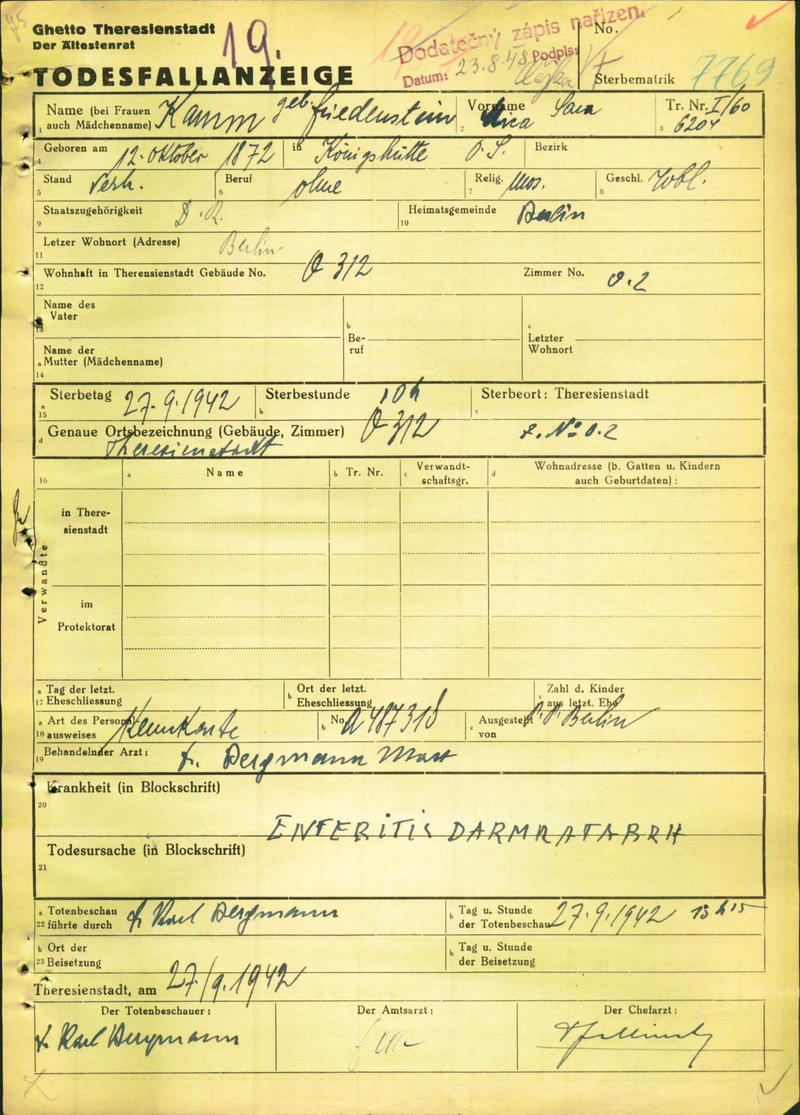 Ghetto Theresienstadt
Der Ältestenrat
19.
Dodatečný zápis nařízen.
Datum: 23.8.48 Podpis:
No.
TODESFALLANZEIGE
Sterbematrik 7769
Name (bei Frauen auch Mädchenname) Kamm geb. Friedenstein Vorname Sara Tr. Nr. I/60
1 2 3 6204
Geboren am 12. Oktober 1872 in Königshütte O. S. Bezirk
4
Stand Verh. Beruf ohne Relig. Mos. Geschl. Wbl.
5 6 7 8
Staatszugehörigkeit D. R. Heimatsgemeinde Berlin
9 10
Letzer Wohnort (Adresse) Berlin
11
Wohnhaft in Therensienstadt Gebäude No. Q 312 Zimmer No. 0.2
12
Name des Vater
13
b Beruf
c Letzter Wohnort
Name der
a Mutter (Mädchenname)
14
a Sterbetag 27. 9. 1942 Sterbestunde 10h Sterbeort: Theresienstadt
15 b c
d Genaue Ortsbezeichnung (Gebäude, Zimmer) Q 312 Z. No 0.2
Theresienstadt
16 a Name b Tr. Nr. c Verwandtschaftsgr. d Wohnadresse (b. Gatten u. Kindern auch Geburtdaten) :
Verwandte
in Theresienstadt
im Protektorat
a Tag der letzt. Ort der letzt. Zahl d. Kinder
17 Eheschliessung b Eheschliessung c aus letzt. Ehe
a Art des Personal- Kennkarte b No. A 487318 c Ausgestellt P. P. Berlin
18 ausweises von
Behandelnder Arzt: Dr. Bergmann
19
Krankheit (in Blockschrift)
20
ENTERITIS DARMKATARRH
Todesursache (in Blockschrift)
21
a Totenbeschau Dr Karl Bergmann b Tag u. Stunde 27. 9. 1942 13 h 15
22 führte durch der Totenbeschau
b Ort der b Tag u. Stunde
23 Beisetzung der Beisetzung
Theresienstadt, am 27/9. 1942
Der Totenbeschauer: Der Amtsarzt: Der Chefarzt:
Dr Karl Bergmann